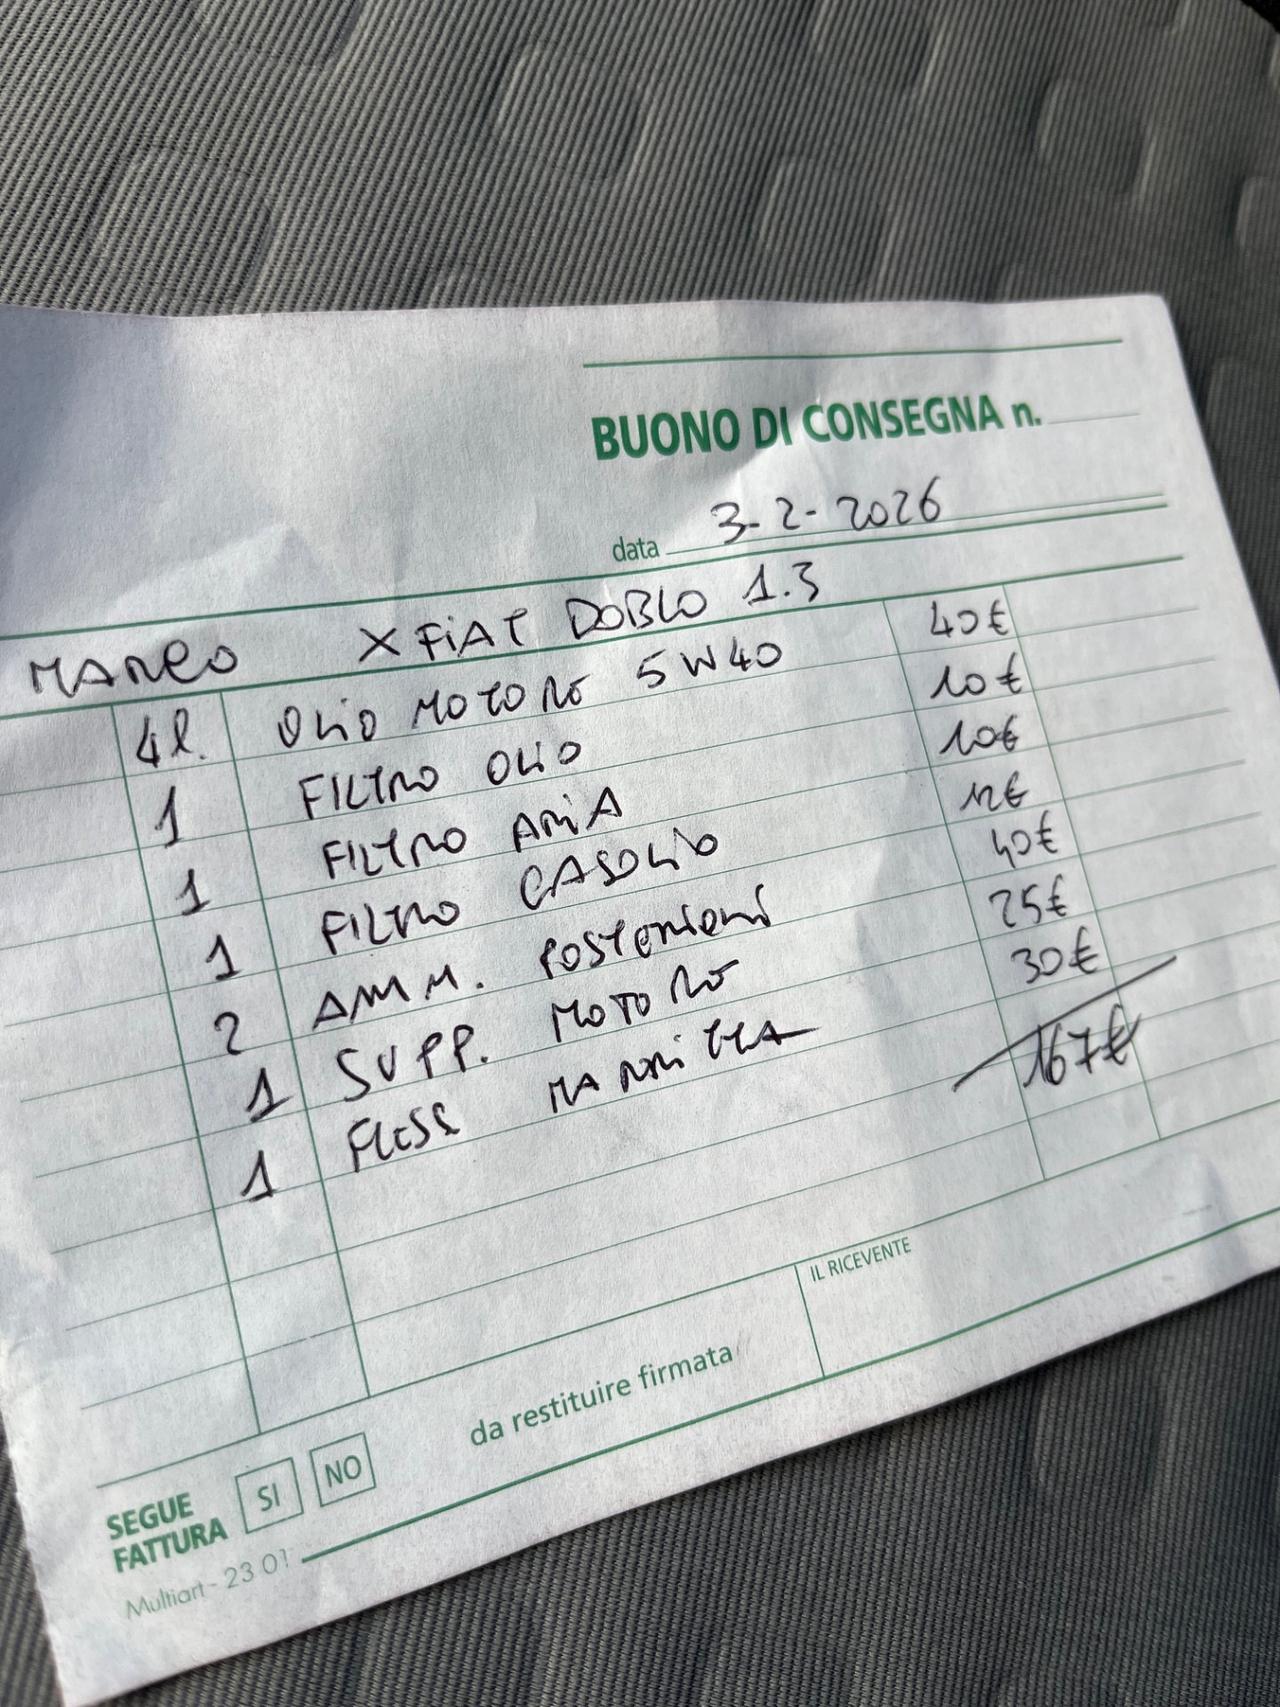 BUONO DI CONSEGNA n.
data 3-2-2026
MARCO X FIAT DOBLO 1.3
4l. OLIO MOTORE 5W40 40€
1 FILTRO OLIO 10€
1 FILTRO ARIA 10€
1 FILTRO GASOLIO 12€
2 AMM. POSTERIORI 40€
1 SUPP. MOTORE 25€
1 FLESS MARMITTA 30€
167€
IL RICEVENTE
da restituire firmata
SEGUE FATTURA SI NO
Multiart - 23 01